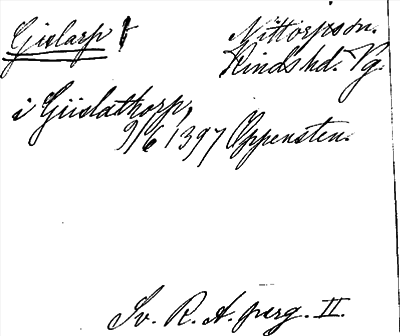 Gislarp Nittorpsson.
Kindshd. Vg.
i Giislathorp,
9/6 1397 Oppensten.
Sv. R. A. perg. II.